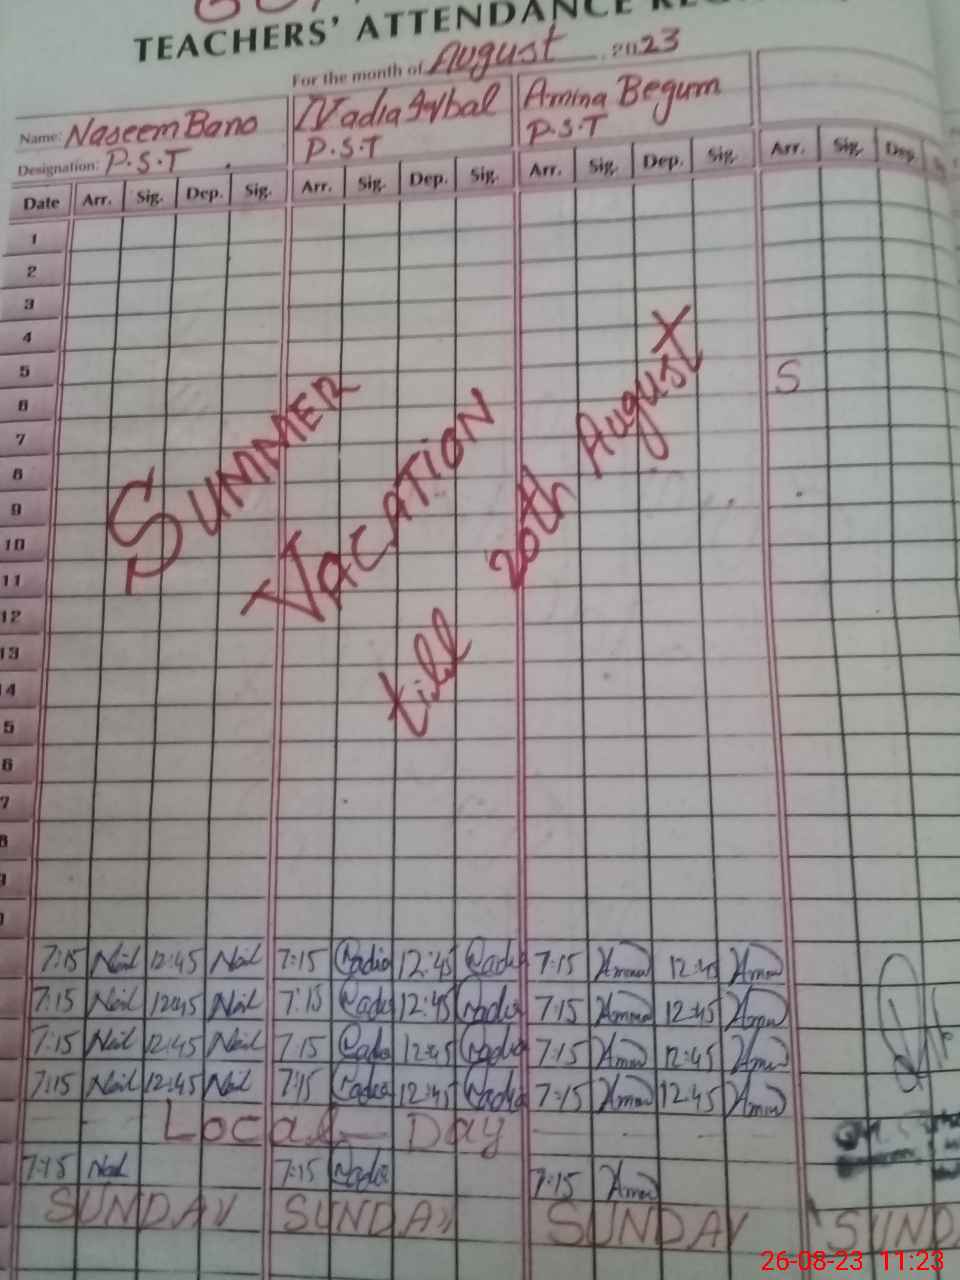 TEACHERS' ATTENDANCE
For the month of August 2023
Name: Naseem Bano Nadia Iqbal Amina Begum
Designation: P.S.T P.S.T P.S.T
Date Arr. Sig. Dep. Sig. Arr. Sig. Dep. Sig. Arr. Sig. Dep. Sig. Arr. Sig. Dep.
1
2
3
4
5 S
6
7
8
9
10
11
12
13
4
5
6
7
8
SUMMER
VACATION
till 20th August
7:15 12:45 7:15 Nadia 12:45 Nadia 7:15 Amina 12:45 Amina
7:15 12:45 7:15 Nadia 12:45 Nadia 7:15 Amina 12:45 Amina
7:15 12:45 7:15 Nadia 12:45 Nadia 7:15 Amina 12:45 Amina
7:15 12:45 7:15 Nadia 12:45 Nadia 7:15 Amina 12:45 Amina
Local Day
7:15 7:15 Nadia 7:15 Amina
SUNDAY SUNDAY SUNDAY SUND
26-08-23 11:23